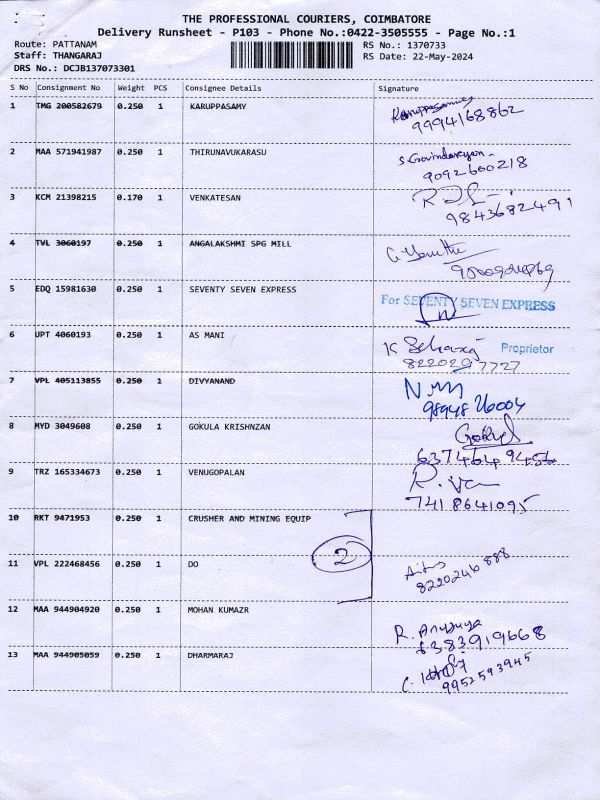 THE PROFESSIONAL COURIERS, COIMBATORE
Delivery Runsheet - P103 - Phone No.:0422-3505555 - Page No.:1
Route: PATTANAM RS No.: 1370733
Staff: THANGARAJ RS Date: 22-May-2024
DRS No.: DCJB137073301
S No Consignment No Weight PCS Consignee Details Signature
1 TMG 200582679 0.250 1 KARUPPASAMY Karuppasamy
9994168862
2 MAA 571941987 0.250 1 THIRUNAVUKARASU S. Govindarajan
9092600218
3 KCM 21398215 0.170 1 VENKATESAN
9843682491
4 TVL 3060197 0.250 1 ANGALAKSHMI SPG MILL
5 EDQ 15981630 0.250 1 SEVENTY SEVEN EXPRESS For SEVENTY SEVEN EXPRESS
6 UPT 4060193 1 0.250 1 AS MANI K Proprietor
8220297727
7 VPL 405113855 0.250 1 DIVYANAND
98948 26004
8 MYD 3049608 0.250 1 GOKULA KRISHNZAN Gokul
9 TRZ 165334673 0.250 1 VENUGOPALAN
7418641095
10 RKT 9471953 0.250 1 CRUSHER AND MINING EQUIP
2
11 VPL 222468456 0.250 1 DO
8220246888
12 MAA 944904920 0.250 1 MOHAN KUMAZR R. Anusuya
6383919668
13 MAA 944905059 0.250 1 DHARMARAJ
9952593945